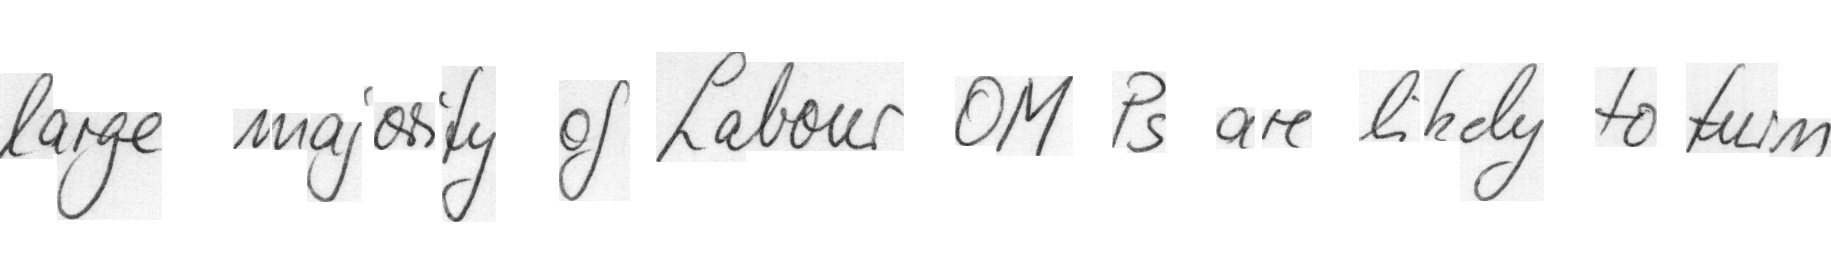 large majority of Labour OM Ps are likely to turn